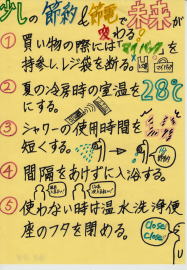 少しの節約&節電で未来が
変わる!
① 買い物の際には「マイバック」を
持参し、レジ袋を断る。
② 夏の冷房時の室温を 28℃
にする。
③ シャワーの使用時間を
短くする。
④ 間隔をあけずに入浴する。
⑤ 使わない時は温水洗浄便
座のフタを閉める。
Close!
Close!